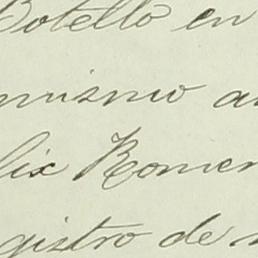 Botello en
mismo a
lix Romer
gistro de